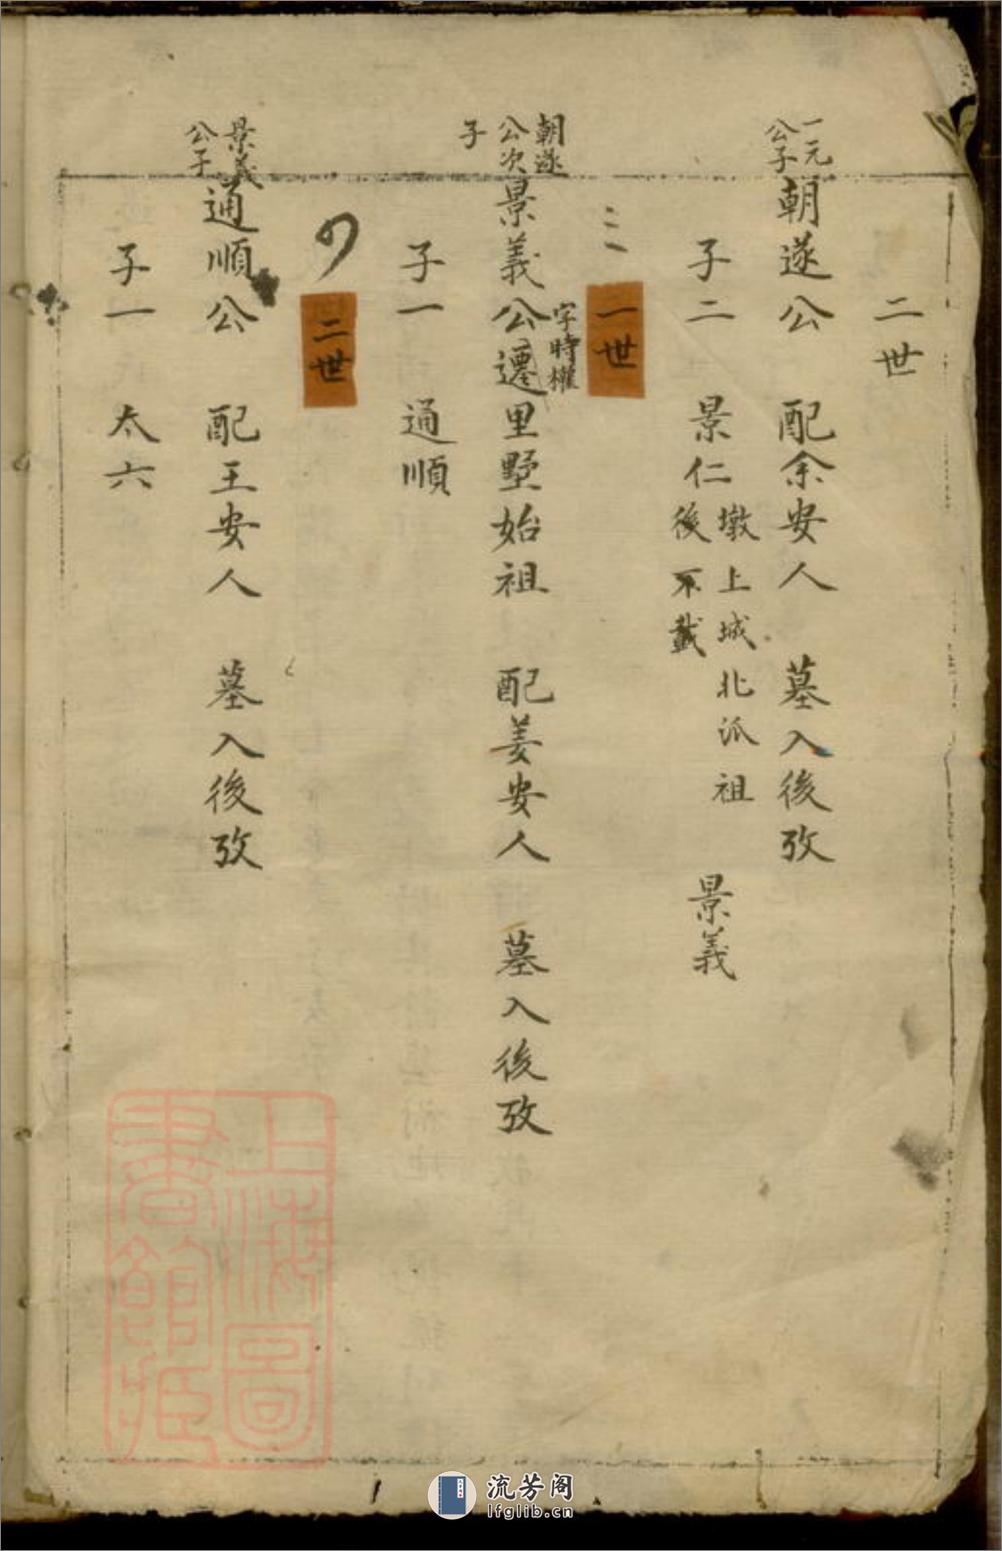 二世
一元公子
朝遂公 配余安人 墓入後攷
子二 景仁 墩上城北派祖後不載 景義
一世
朝遂公次子
景義公遷里墅始祖 配姜安人 墓入後攷
字時權
子一 通順
二世
景義公子
通順公 配王安人 墓入後攷
子一 太六
上海圖書館藏
流芳阁
lfglib.cn